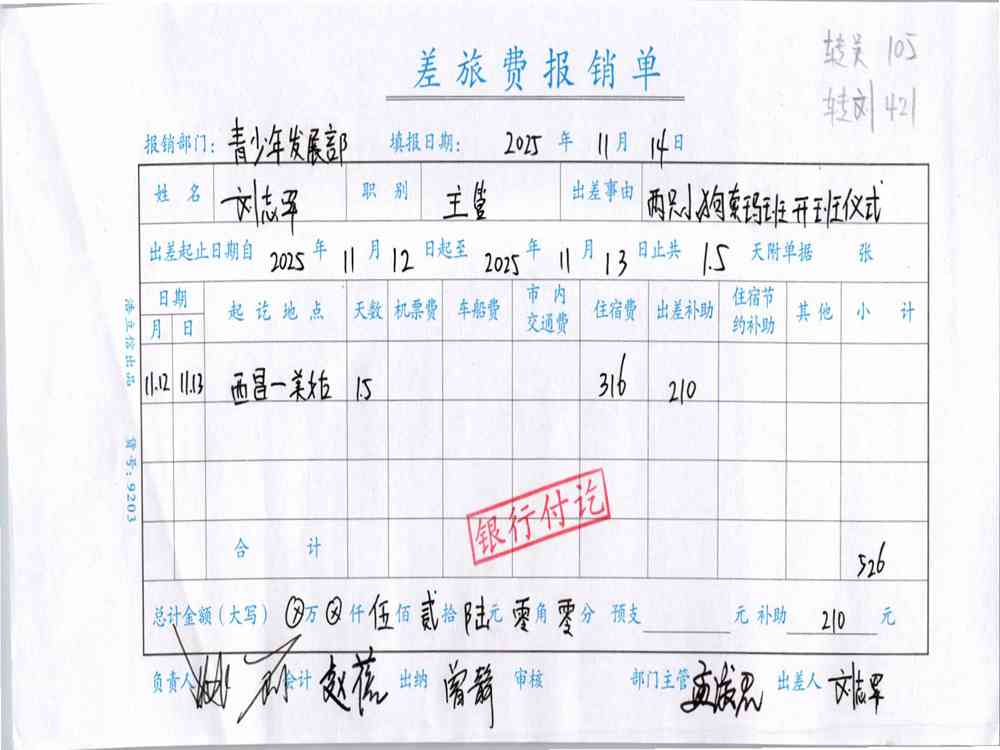 转吴 105
转刘 421
差旅费报销单
报销部门：青少年发展部 填报日期： 2025 年 11 月 14 日
姓名 刘志军 职别 主管 出差事由 两只小狗索玛班开班仪式
出差起止日期自 2025 年 11 月 12 日起至 2025 年 11 月 13 日止共 1.5 天附单据 张
日期 起讫地点 天数 机票费 车船费 市内交通费 住宿费 出差补助 住宿节约补助 其他 小计
月 日
11.12 11.13 西昌一美姑 1.5 316 210
银行付讫
合计 526
总计金额（大写） ⊗万 ⊗仟 伍佰 贰拾 陆元 零角 零分 预支 元 补助 210 元
负责人 会计 赵蓓 出纳 曾静 审核 部门主管 出差人 刘志军
浩立信出品 货号：9203